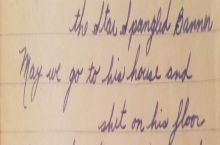 the Star Spangled Banner
May we go to his house and
shit on his floor